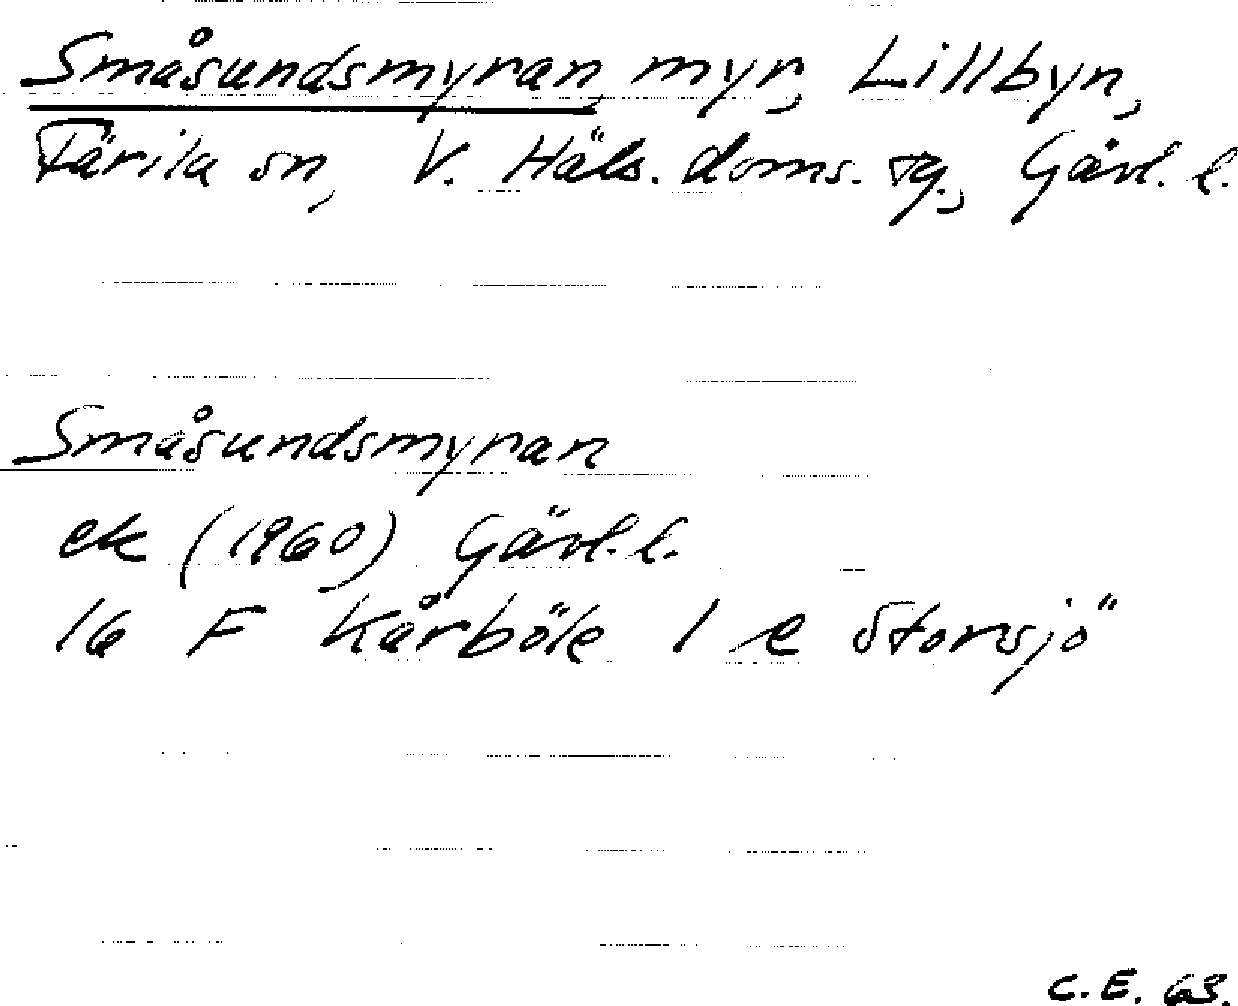 Småsundsmyran, myr, Lillbyn,
Färila sn, V. Häls. doms. sg., Gävl. l.
Småsundsmyran
ek (1960) Gävl. l.
16 F Kårböle 1 e Storsjö
C.E. 63.